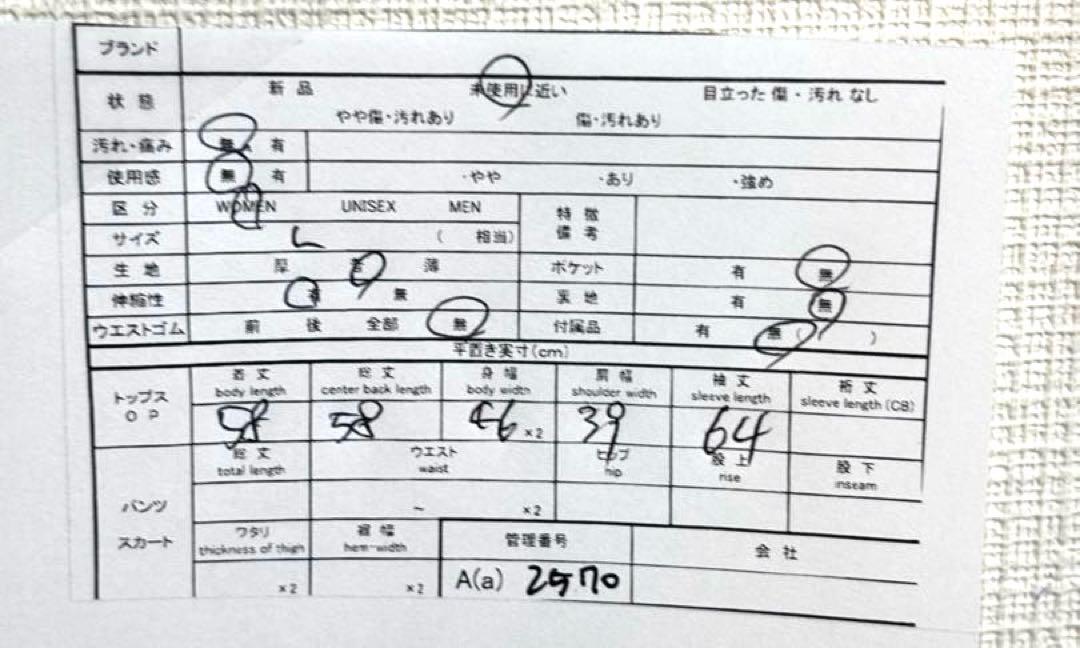 ブランド
状態 新品 未使用に近い 目立った傷・汚れなし
やや傷・汚れあり 傷・汚れあり
汚れ・痛み 無 有
使用感 無 有 ・やや ・あり ・強め
区分 WOMEN UNISEX MEN 特徴
備考
サイズ L ( 相当)
生地 厚 普 薄 ポケット 有 無
伸縮性 有 無 裏地 有 無
ウエストゴム 前 後 全部 無 付属品 有 無 ( )
平置き実寸(cm)
トップス
OP
着丈 総丈 身幅 肩幅 袖丈 裄丈
body length center back length body width shoulder width sleeve length sleeve length (CB)
58 58 46 ×2 39 64
総丈 ウエスト ヒップ 股上 股下
total length waist hip rise inseam
パンツ ~ ×2
スカート
ワタリ 裾幅 管理番号 会社
thickness of thigh hem-width
×2 ×2 A(a)